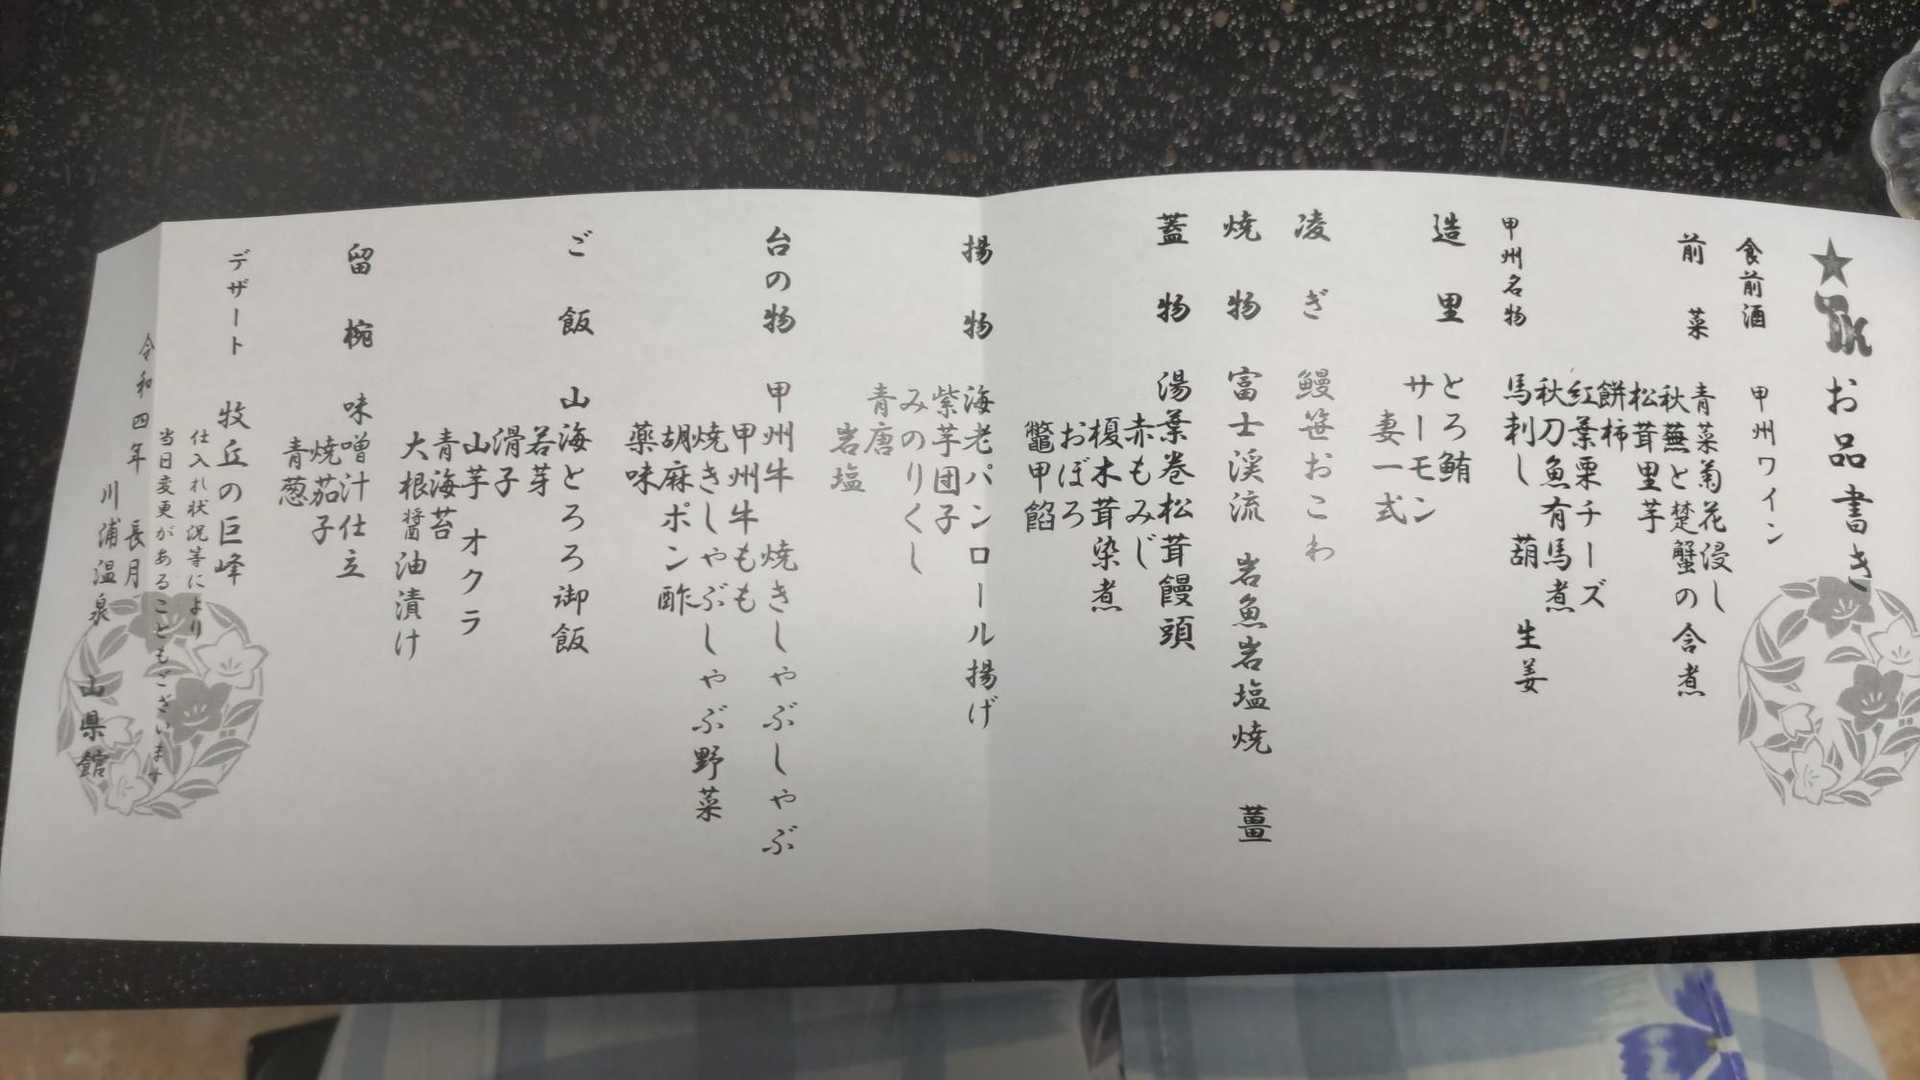 お品書き
食前酒 甲州ワイン
前菜 青菜菊花浸し
秋蕪と楚蟹の含煮
松茸里芋
餅柿
紅葉栗チーズ
秋刀魚有馬煮
甲州名物 馬刺し 葫 生姜
造里 とろ鮪
サーモン
妻一式
凌ぎ 鰻笹おこわ
焼物 富士渓流 岩魚岩塩焼 薑
蓋物 湯葉巻松茸饅頭
赤もみじ
榎木茸染煮
おぼろ
鼈甲餡
揚物 海老パンロール揚げ
紫芋団子
みのりくし
青唐
岩塩
台の物 甲州牛 焼きしゃぶしゃぶ
甲州牛もも
焼きしゃぶしゃぶ野菜
胡麻ポン酢
薬味
ご飯 山海とろろ御飯
若芽
滑子
山芋 オクラ
青海苔
大根醤油漬け
留椀 味噌汁仕立
焼茄子
青葱
デザート 牧丘の巨峰
仕入れ状況等により
当日変更があることもございます
令和四年 長月
川浦温泉 山県館